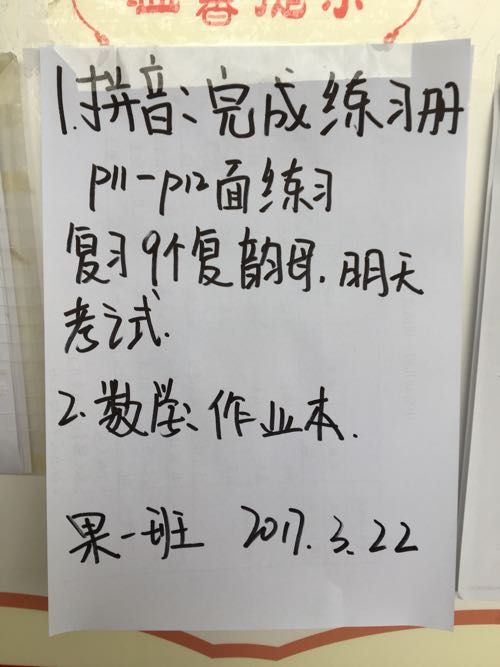 温馨提示
1.拼音：完成练习册
P11-P12面练习
复习9个复韵母.明天
考试.
2.数学：作业本.
果一班 2017.3.22